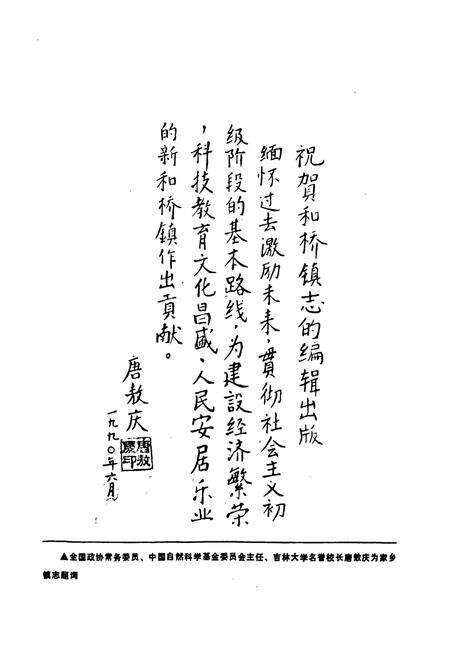 祝賀和桥镇志的编辑出版
缅怀过去激励未来，貫彻社会主义初
级阶段的基本路线，为建設经济繁荣
，科技教育文化昌盛、人民安居乐业
的新和桥鎮作出貢献。
唐敖庆
唐敖慶印
一九九〇年六月
▲全国政协常务委员、中国自然科学基金委员会主任、吉林大学名誉校长唐敖庆为家乡
镇志题词